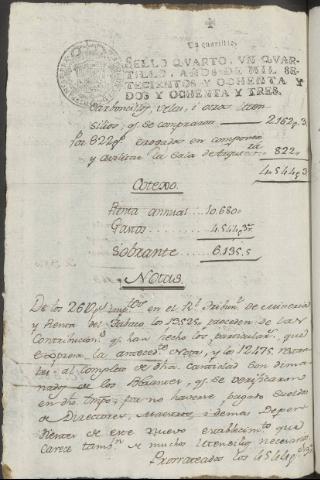 Un quartillo
SELLO QVARTO, VN QVAR-
TILLO, AÑOS DE MIL SE-
TECIENTOS Y OCHENTA Y
DOS Y OCHENTA Y TRES.
Carboncillos, velas, i otros uten
silios, q.e se compraron 2.162p.3
Por 822p.s erogados en componer
y la Sala de 822.
4.544p.3
Cotexo.
Renta annual 10.680.
Gastos 4.544p.3r
Sobrante 6.135.5
Notas
De los en el R.l Tribun.l de Mineria
y Renta del Tabaco los 13525p. proceden de las
Contribucion.s q.e han hecho los particular.s que
expresa la anteced.te Nota, y los 12475 restan
tes al completo de dha cantidad son dima
nados de los Sobrantes, q.e se verificaron
en dho tmpo, por no haverse pagado Sueldos
de Directores, Maestros, i demas Depen
dientes de este nuevo establecim.to que
carece tamb.n de muchos Utencilios necesarios
Prorrateados los 4544p.